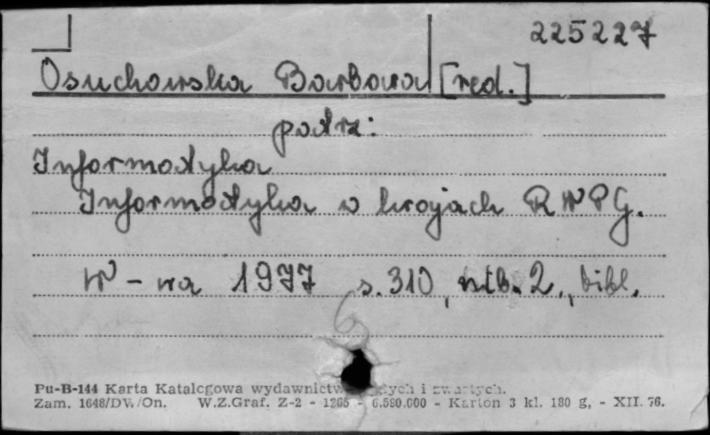 225227
Osuchowska Barbara [red.]
patrz:
Informatyka
Informatyka w krajach RWPG.
W-wa 1977 s. 310, ntb. 2., bibl.
6
Pu-B-144 Karta Katalogowa wydawnictw ych i zwartych.
Zam. 1648/DW./On. W.Z.Graf. Z-2 - 1265 - 6.580.000 - Karton 3 kl. 180 g, - XII. 76.